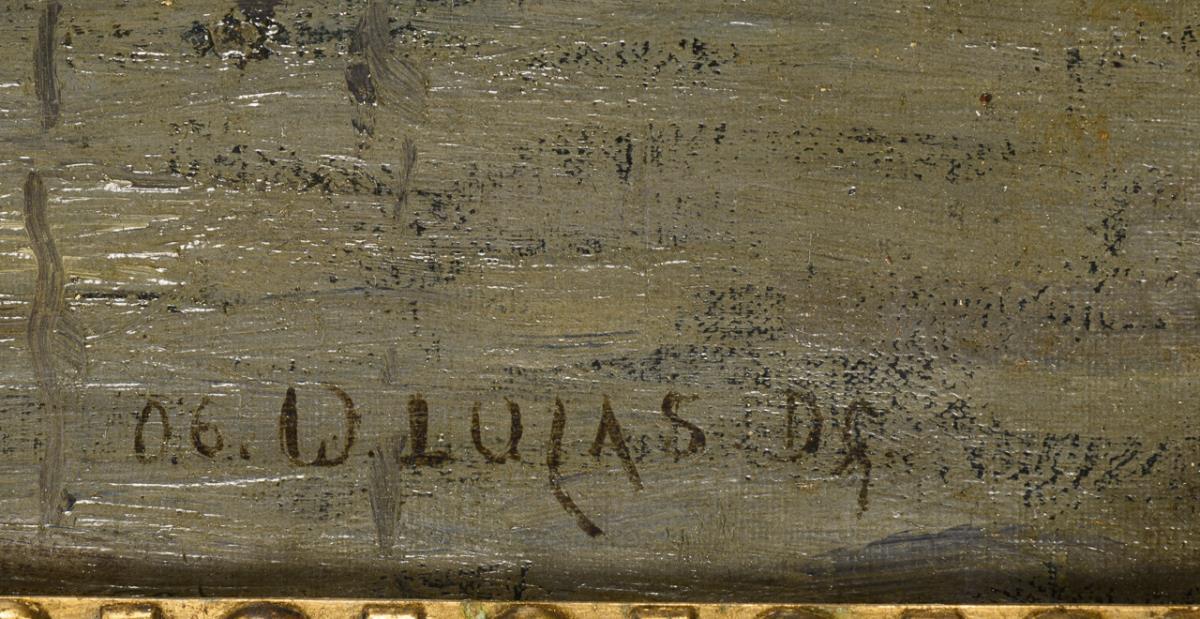 06. D. LUCAS DG.